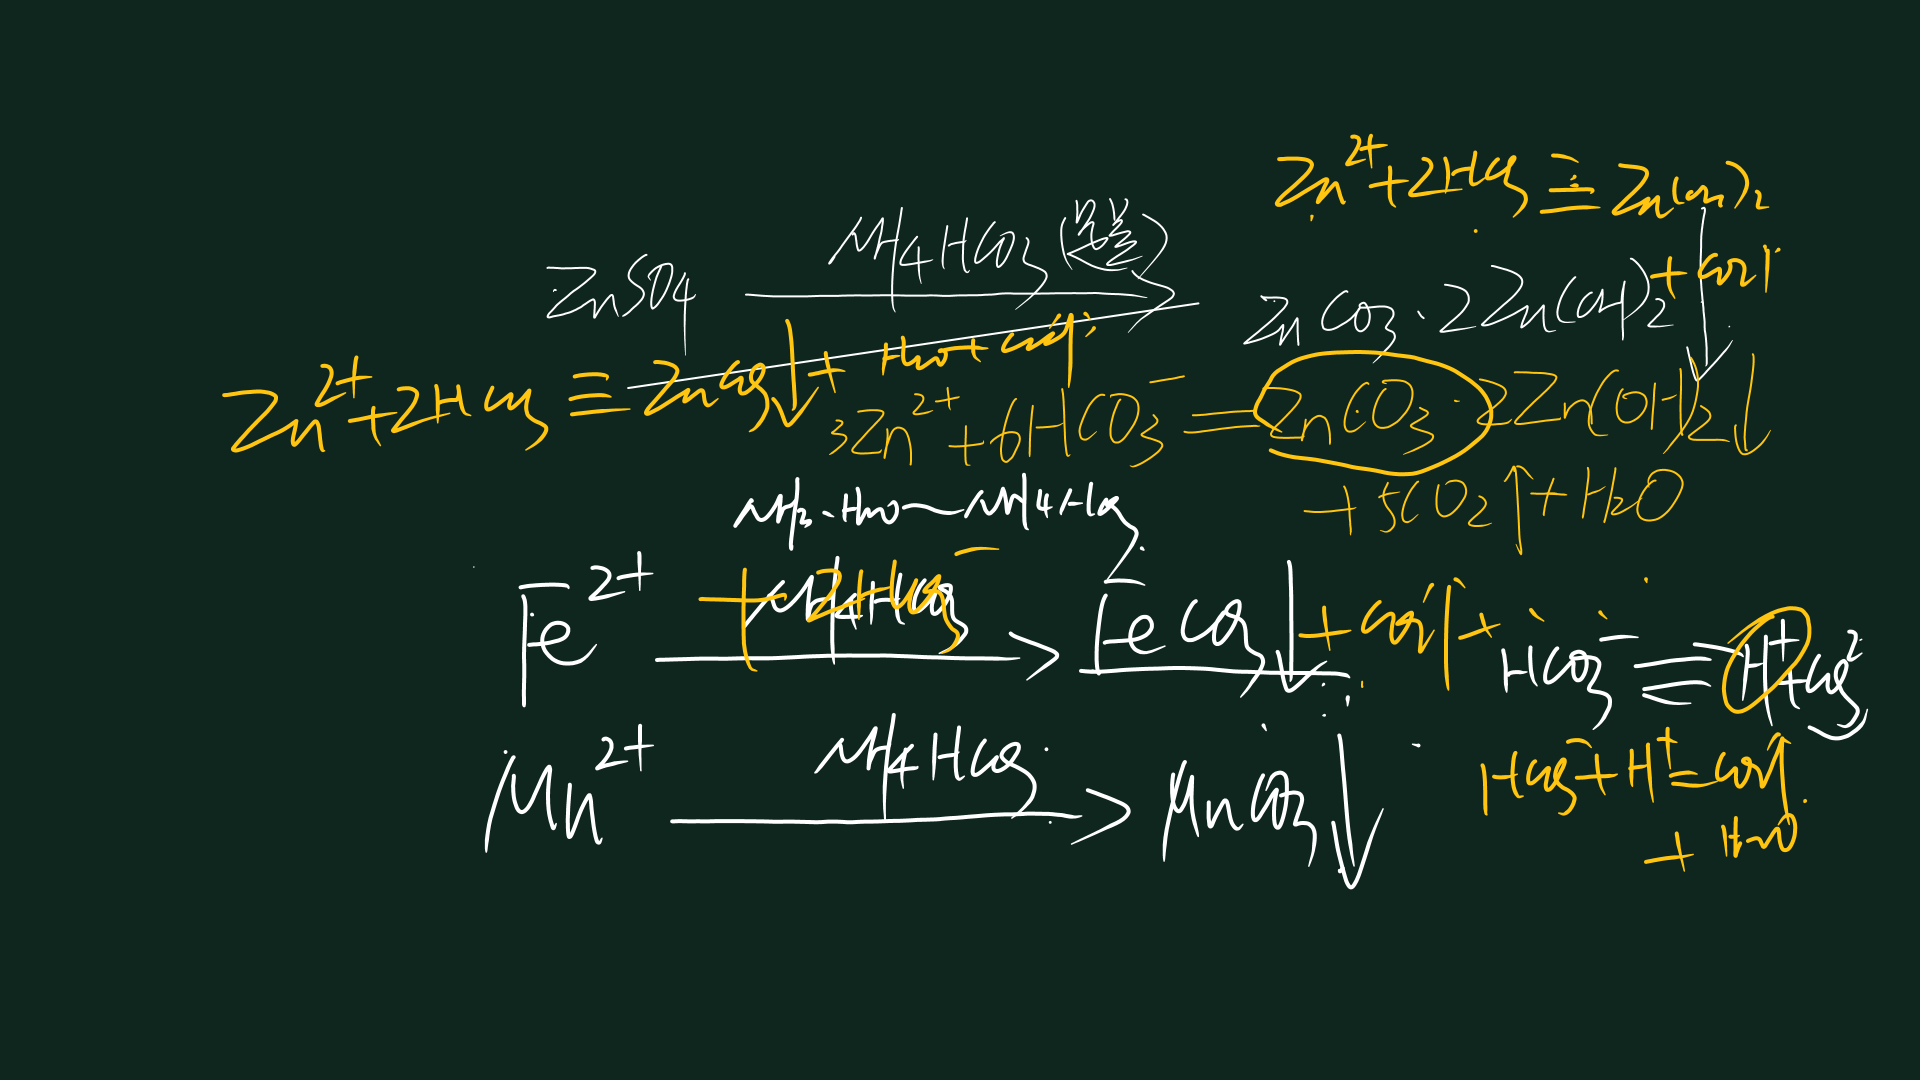 Zn²⁺+2HCO₃⁻=Zn(OH)₂↓
+CO₂↑
ZnSO₄ NH₄HCO₃(足量)→ ZnCO₃·2Zn(OH)₂
Zn²⁺+2HCO₃=ZnCO₃↓+H₂O+CO₂↑
3Zn²⁺+6HCO₃⁻=ZnCO₃·2Zn(OH)₂↓
+5CO₂↑+H₂O
NH₃·H₂O~NH₄HCO₃
Fe²⁺ +2HCO₃⁻ → FeCO₃↓+CO₂↑+
HCO₃⁻=H⁺+CO₃²⁻
Mn²⁺ NH₄HCO₃→ MnCO₃↓
HCO₃⁻+H⁺=CO₂↑
+H₂O